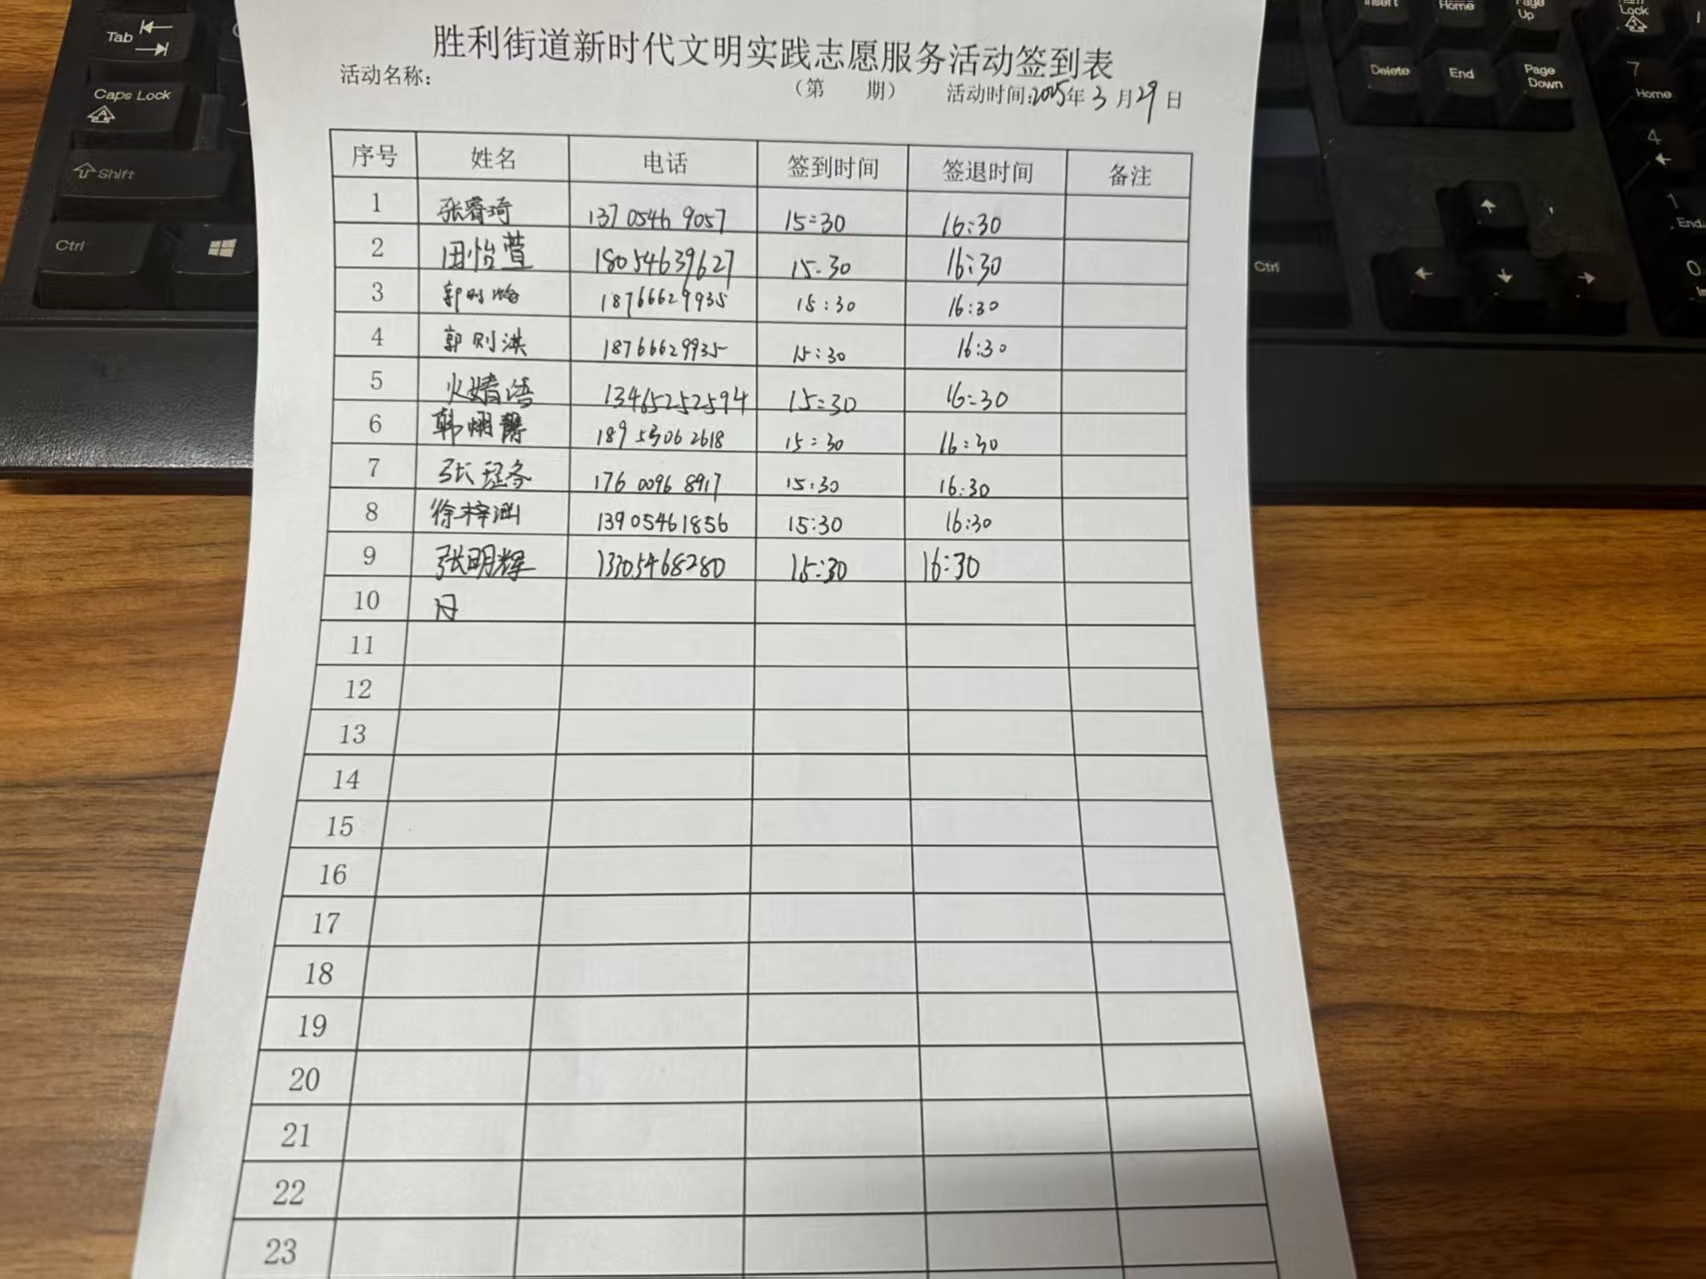 Tab
Caps Lock
Shift
Ctrl
Insert Home Page Up
Delete End Page Down
Lock
7 Home
4
1 End
0
Ctrl
胜利街道新时代文明实践志愿服务活动签到表
活动名称: （第 期） 活动时间:2025年3月29日
序号 姓名 电话 签到时间 签退时间 备注
1 张睿琦 13705469057 15:30 16:30
2 田怡萱 18054639627 15:30 16:30
3 郭时 18766629935 15:30 16:30
4 郭则洪 18766629935 15:30 16:30
5 火婧语 13465252594 15:30 16:30
6 韩 18953062618 15:30 16:30
7 张 17600968917 15:30 16:30
8 徐梓涵 13905461856 15:30 16:30
9 张明辉 13305468280 15:30 16:30
10
11
12
13
14
15
16
17
18
19
20
21
22
23